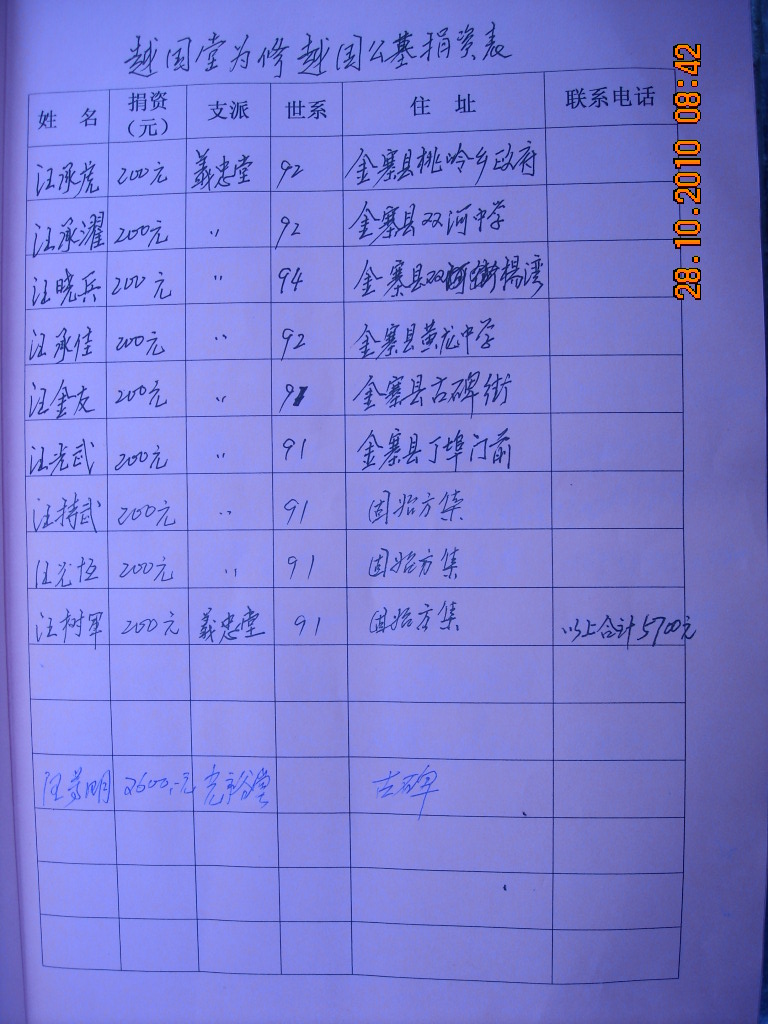 越国堂为修越国公墓捐资表
姓 名 捐资（元） 支派 世系 住 址 联系电话
汪承虎 200元 義忠堂 92 金寨县桃岭乡政府
汪承濯 200元 〃 92 金寨县双河中学
汪晓兵 200元 〃 94 金寨县双河街楊湾
汪承佳 200元 〃 92 金寨县黄龙中学
汪金友 200元 〃 91 金寨县古碑街
汪光武 200元 〃 91 金寨县丁埠门前
汪持武 200元 〃 91 固始方集
汪光恒 200元 〃 91 固始方集
汪树军 200元 義忠堂 91 固始方集 以上合计5700元
2600.-元 古碑
28.10.2010 08:42